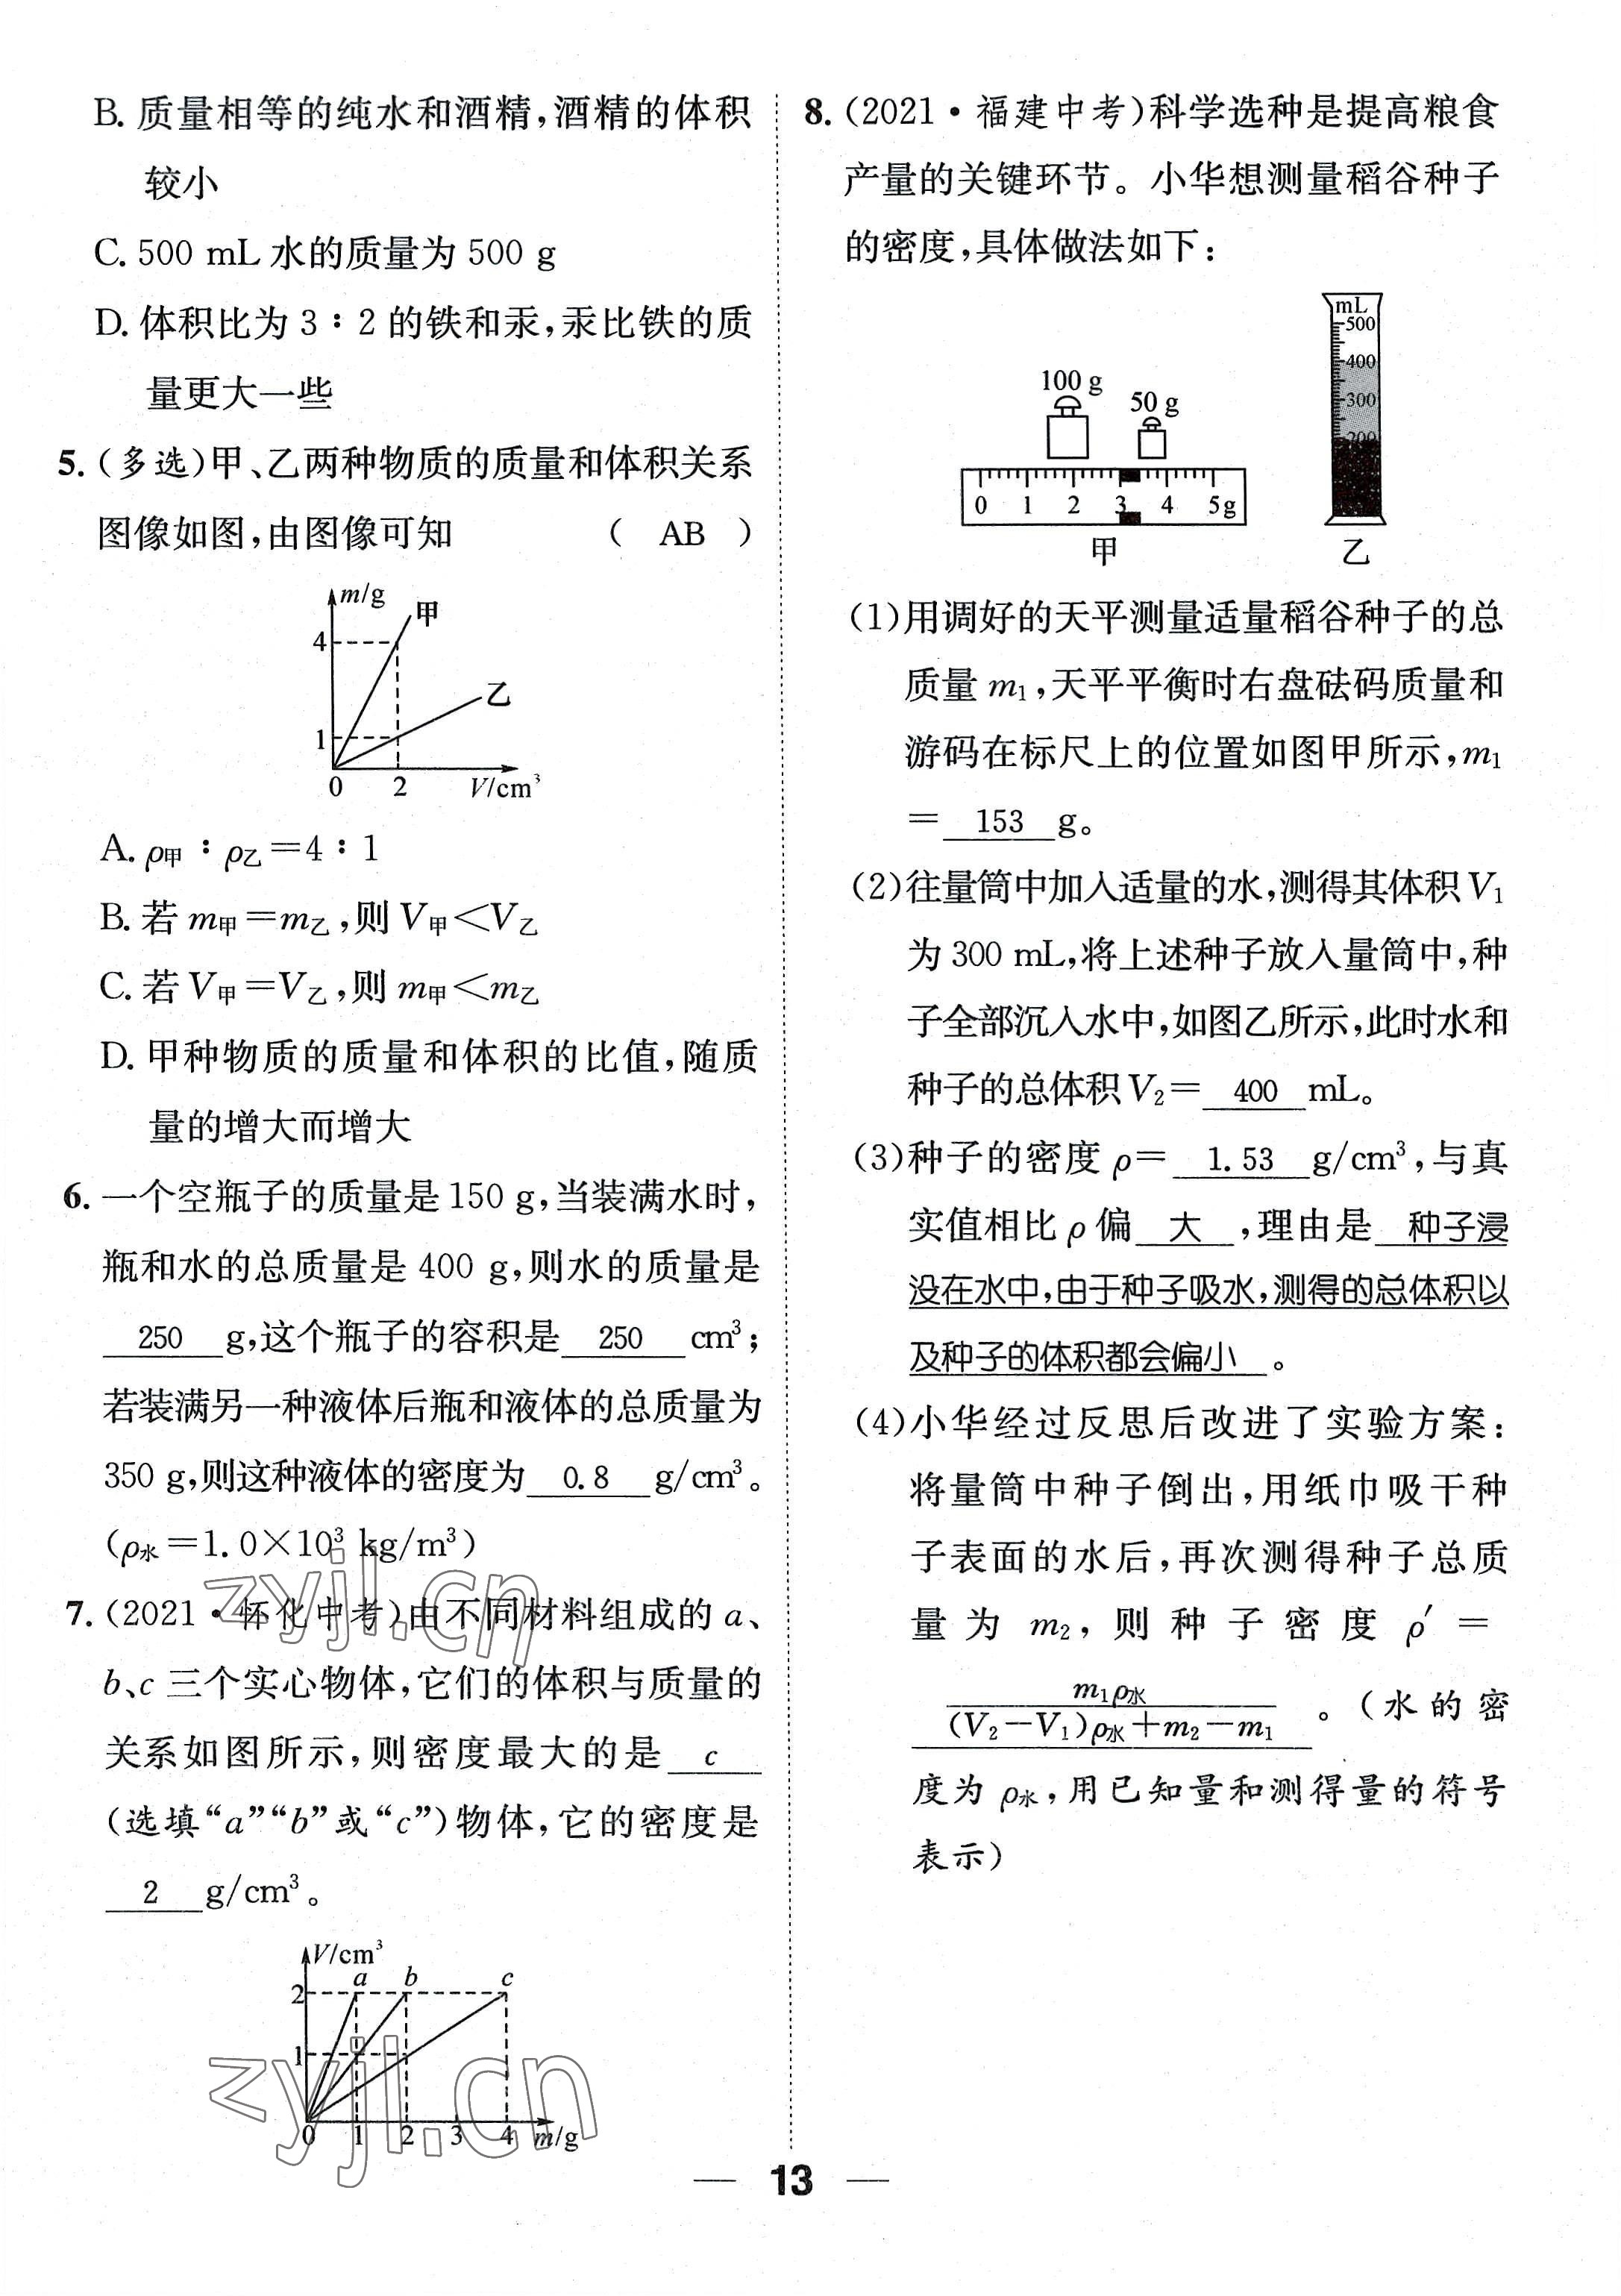 B. 质量相等的纯水和酒精,酒精的体积
较小
C. 500 mL 水的质量为 500 g
D. 体积比为 3∶2 的铁和汞,汞比铁的质
量更大一些
5. (多选)甲、乙两种物质的质量和体积关系
图像如图,由图像可知 ( AB )
m/g
甲
4
乙
1
0 2 V/cm³
A. ρ甲∶ρ乙=4∶1
B. 若 m甲=m乙,则 V甲<V乙
C. 若 V甲=V乙,则 m甲<m乙
D. 甲种物质的质量和体积的比值,随质
量的增大而增大
6. 一个空瓶子的质量是 150 g,当装满水时,
瓶和水的总质量是 400 g,则水的质量是
250 g,这个瓶子的容积是 250 cm³;
若装满另一种液体后瓶和液体的总质量为
350 g,则这种液体的密度为 0.8 g/cm³。
(ρ水=1.0×10³ kg/m³)
7. (2021·怀化中考)由不同材料组成的 a、
b、c 三个实心物体,它们的体积与质量的
关系如图所示,则密度最大的是 c
(选填“a”“b”或“c”)物体,它的密度是
2 g/cm³。
V/cm³
a b c
2
1
0 1 2 3 4 m/g
zyjl.cn
zyjl.cn
8. (2021·福建中考)科学选种是提高粮食
产量的关键环节。小华想测量稻谷种子
的密度,具体做法如下:
100 g
50 g
0 1 2 3 4 5g
甲
mL
500
400
300
200
乙
(1)用调好的天平测量适量稻谷种子的总
质量 m₁,天平平衡时右盘砝码质量和
游码在标尺上的位置如图甲所示,m₁
= 153 g。
(2)往量筒中加入适量的水,测得其体积 V₁
为 300 mL,将上述种子放入量筒中,种
子全部沉入水中,如图乙所示,此时水和
种子的总体积 V₂= 400 mL。
(3)种子的密度 ρ= 1.53 g/cm³,与真
实值相比 ρ 偏 大 ,理由是 种子浸
没在水中,由于种子吸水,测得的总体积以
及种子的体积都会偏小 。
(4)小华经过反思后改进了实验方案:
将量筒中种子倒出,用纸巾吸干种
子表面的水后,再次测得种子总质
量为 m₂,则种子密度 ρ′=
m₁ρ水
(V₂−V₁)ρ水+m₂−m₁ 。(水的密
度为 ρ水,用已知量和测得量的符号
表示)
— 13 —